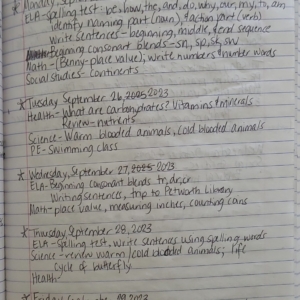 * Monday, September
ELA-Spelling test be, how, the, and, do, why, our, my, to, am
identify naming part (noun), action part (verb)
Write sentences - beginning, middle, end sequence
Beginning consonant blends - sn, sp, st, sw
Math - (Benny-place value), write numbers & number words
Social studies - continents
* Tuesday, September 26, 2023
Health - What are carbohydrates? Vitamins & minerals
Review - nutrients
Science - Warm blooded animals, cold blooded animals
PE - Swimming class
* Wednesday, September 27, 2023
ELA - Beginning consonant blends tr, dr, cr
Writing sentences, trip to Petworth Library
Math - place value, measuring inches, counting coins
* Thursday, September 28, 2023
ELA - Spelling test, Write sentences using spelling words
Science - review warm/cold blooded animals, life
cycle of butterfly
Health -
* Friday